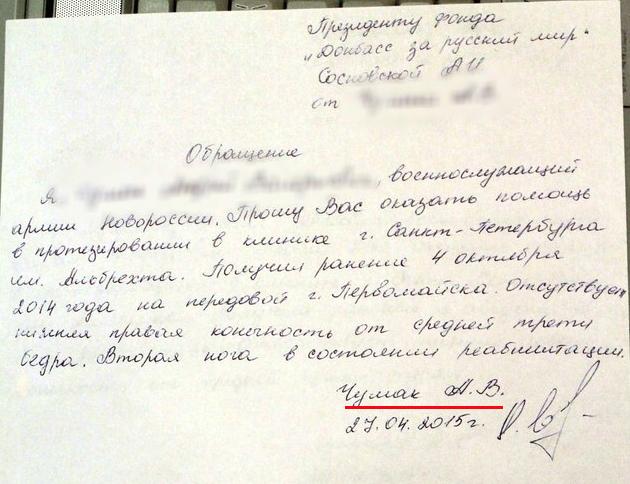 Президенту Фонда
„Донбасс за русский мир"
Сосновской А И
от
Обращение
Я, , военнослужащий
армии Новороссии. Прошу Вас оказать помощь
в протезировании в клинике г. Санкт-Петербурга
им. Альбрехта. Получил ранение 4 октября
2014 года на передовой г. Первомайска. Отсутствует
нижняя правая конечность от средней трети
бедра. Вторая нога в состоянии реабилитации.
Чумак А.В.
27.04.2015г.